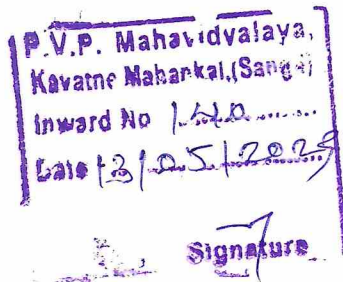 P.V.P. Mahavidvalaya,
Kavatne Mahankal,(Sangli)
Inward No 140
Date 13/05/2025
Signature